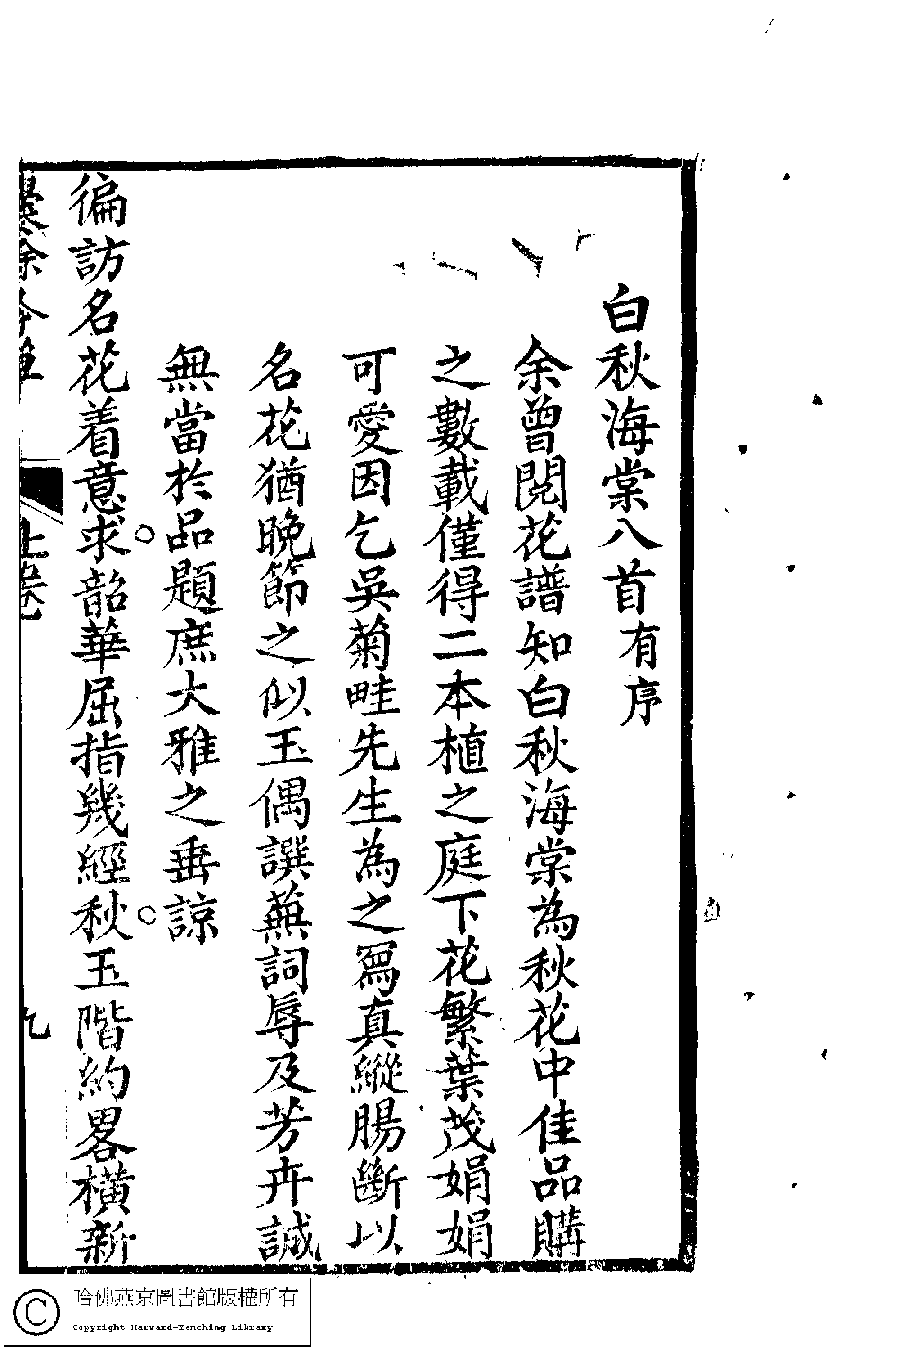 白秋海棠八首有序
余曾閱花譜知白秋海棠為秋花中佳品購
之數載僅得二本植之庭下花繁葉茂娟娟
可愛因乞吳菊畦先生為之寫真縱腸斷以
名花猶晚節之似玉偶譔蕪詞辱及芳卉誠
無當於品題庶大雅之垂諒
徧訪名花着意求○韶華屈指幾經秋○玉階約畧橫新
上卷
九
哈佛燕京圖書館版權所有
Copyright Harvard-Yenching Library